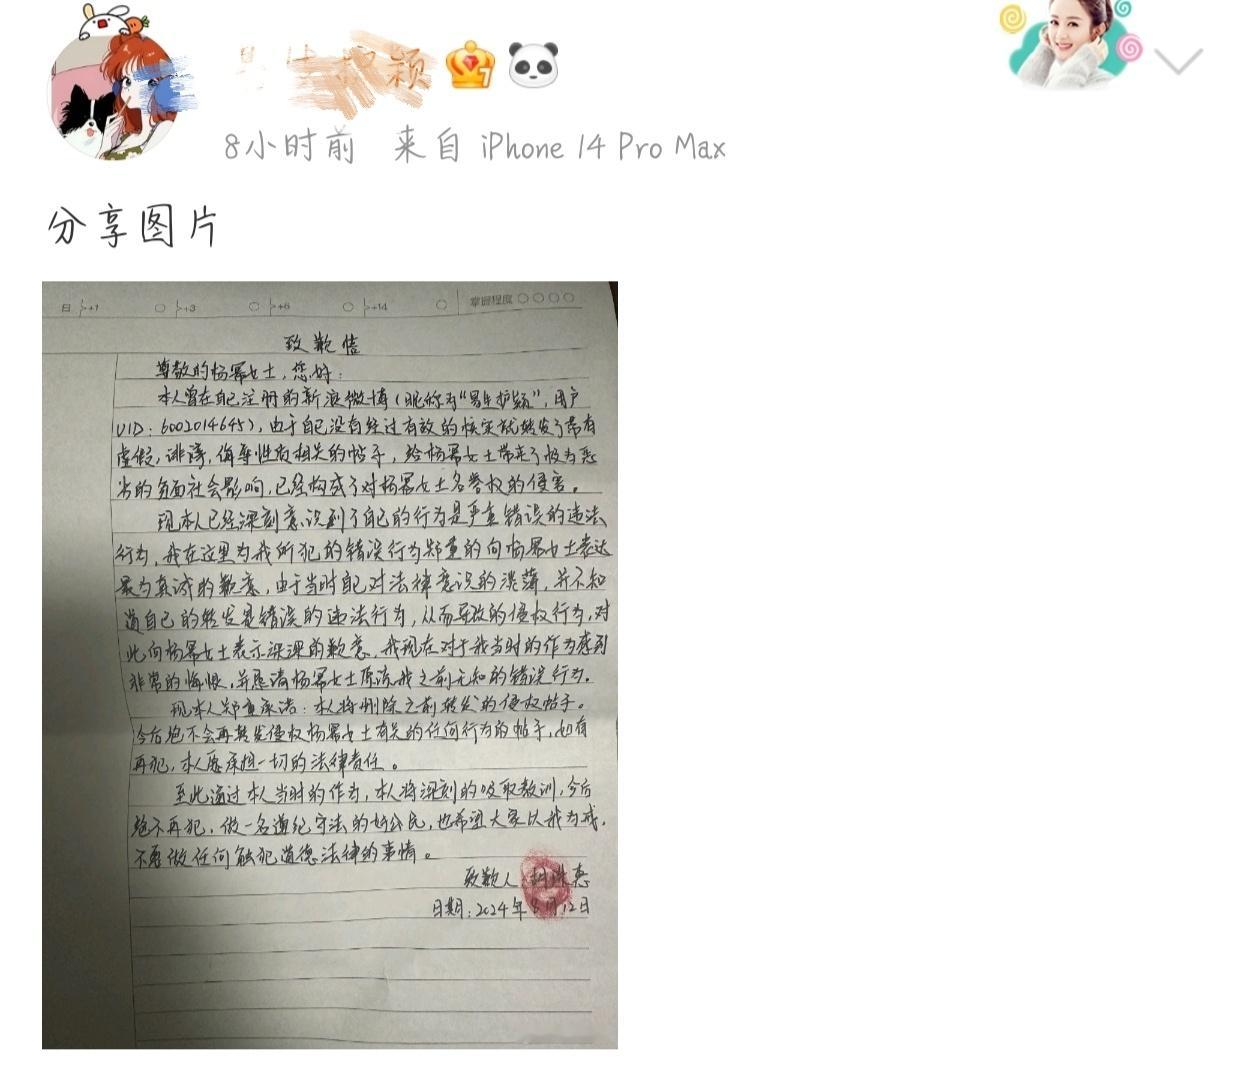 颖
8小时前 来自 iPhone 14 Pro Max
分享图片
日 +1 +3 +6 +14 掌握程度
致歉信
尊敬的杨幂女士,您好:
本人曾在自己注册的新浪微博(昵称为“易生护颖”,用户
UID:6002014645),由于自己没有经过有效的核实就转发了带有
虚假,诽谤,侮辱性质相关的帖子,给杨幂女士带来了极为恶
劣的负面社会影响,已经构成了对杨幂女士名誉权的侵害。
现本人已经深刻意识到了自己的行为是严重错误的违法
行为,我在这里为我所犯的错误行为郑重的向杨幂女士表达
最为真诚的歉意,由于当时自己对法律意识的淡薄,并不知
道自己的转发是错误的违法行为,从而导致的侵权行为,对
此向杨幂女士表示深深的歉意,我现在对于我当时的作为感到
非常的悔恨,并恳请杨幂女士原谅我之前无知的错误行为。
现本人郑重承诺:本人将删除之前转发的侵权帖子。
今后绝不会再转发侵权杨幂女士有关的任何行为的帖子,如有
再犯,本人愿承担一切的法律责任。
至此通过本人当时的作为,本人将深刻的吸取教训,今后
绝不再犯,做一名遵纪守法的好公民,也希望大家以我为戒,
不要做任何触犯道德法律的事情。
致歉人:
日期:2024年8月12日